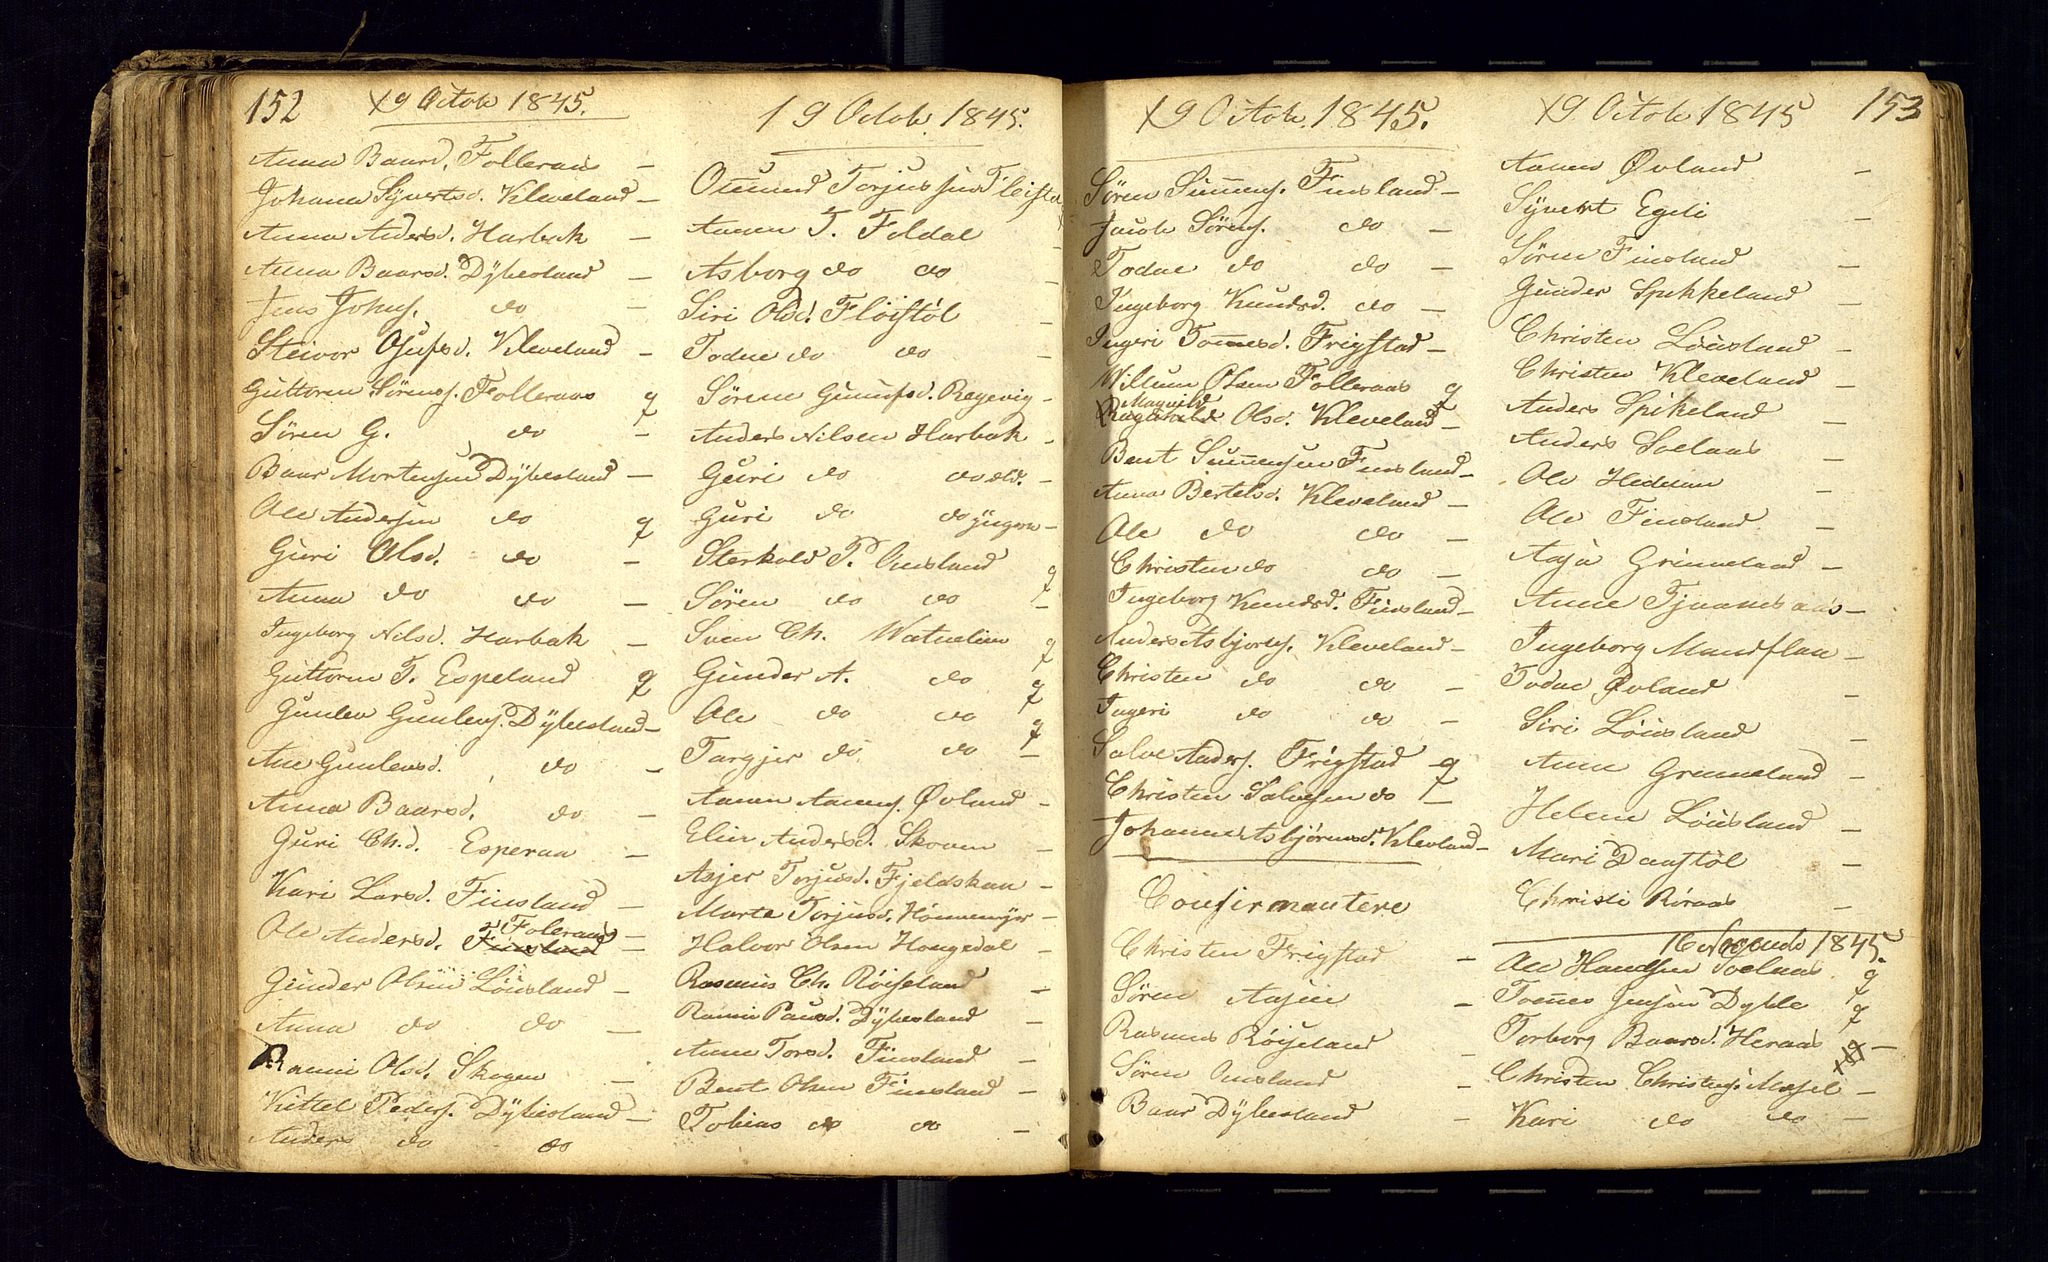 152
19 Octob 1845.
Anna Baard. Folleraas –
Johanna Syvertsd. Kleveland –
Anna Andersd. Harbak –
Anna Baarsd. Dybesland –
Jens Johns. do –
Steivor Osufsd. Kleveland –
Guttorm Sørens. Folleraas q
Søren G. do –
Baar Mortensen Dybesland –
Ale Andersen do q
Guri Olsd. do –
Anna do do –
Ingeborg Nilsd. Harbak –
Guttorm T. Espeland q
Gunlev Gunlevs. Dybesland –
Ane Gunlevsd. do –
Anna Baarsd. do –
Guri Ch.d. Esperaa –
Kari Larsd. Finsland –
Ale Andersd. Finsland Foleraas –
Gunder Olsen Løusland –
Anna do do –
Ranni Olsd. Skogen –
Kittel Peders. Dybesland –
Anders do do
19 Octob. 1845.
Osmund Torjussen Fløista
Aanen T. Foldal –
Asborg do do –
Siri Olsd. Fløistøl –
Todne do do –
Sørine Gunufsd. Rogevig –
Anders Nilsen Harbak –
Guri do do æld. –
Guri do do yngre –
Sterkold P. Omsland q
Søren do do –
Sven Ch. Watnelien q
Gunder A. do q
Ale do do q
Targjer do do –
Aanen Aanens. Øvland –
Elin Andersd. Skoven –
Asjer Torjusd. Fjeldskaar –
Marte Torjusd. Hønnemyr –
Halvor Olsen Hougedal –
Rasmus Ch. Røiseland –
Ranni Paulsd. Dybesland –
Anne Torsd. Finsland –
Bent Olsen Finsland –
Tobias do do –
19 Octob. 1845.
Søren Sunnens. Finsland –
Jacob Sørens. do –
Todne do do –
Ingeborg Knudsd. do –
Ingeri Tomesd. Frigstad –
Willum Olsen Folleraas q
Magnild
Ragnhild Olsd. Kleveland –
Bent Sunnensen Finsland –
Anna Bertelsd. Kleveland –
Ale do do –
Christen do do –
Ingeborg Knudsd. Finsland –
Anders Asbjørns. Kleveland –
Christen do do –
Ingeri do do –
Salve Anders. Frigstad q
Christen Salvesen do –
Johanne Asbjørnsd. Klevland –
Confirmantere
Christen Frigstad –
Søren Aasen –
Rasmus Røiseland –
Søren Omsland –
Baar Dybesland –
19 Octob 1845 153
Aanen Øvland –
Syvert Egeli –
Søren Finsland –
Gunder Spikkeland –
Christen Løusland –
Christen Kleveland –
Anders Spikeland –
Anders Solaas –
Ale Heddan –
Ale Finsland –
Aasa Grinneland –
Anne Tjuamsaas –
Ingeborg Mandflaa –
Todne Øvland –
Siri Løusland –
Anne Grinneland –
Helene Løusland –
Mari Danstøl –
Christi Røraas –
16 Novemb 1845.
Ale Hansen Solaas q
Tomes Jensen Dyble q
Torborg Baarsd. Heraas –
Christen Christens. Mosel –
Kari do do –